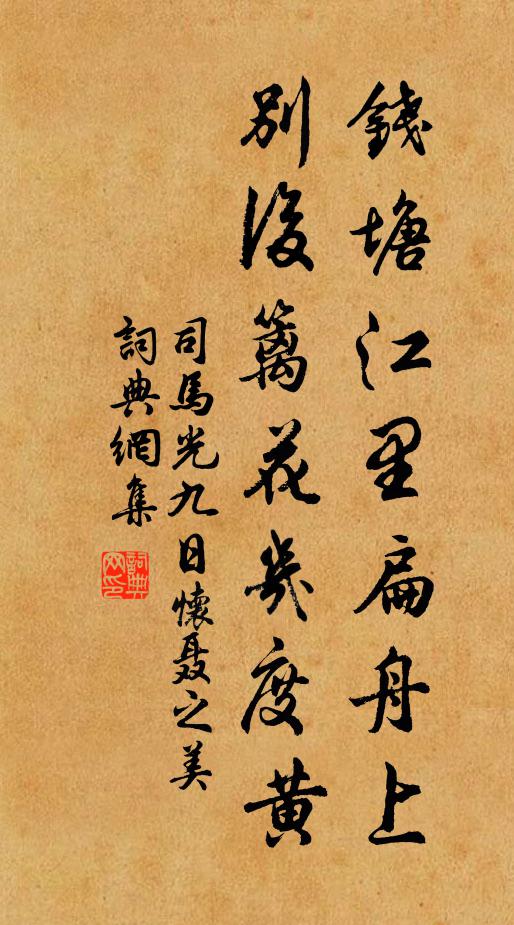 錢塘江里扁舟上
別後籬花幾度黃
司馬光九日懷聶之美
詞典網集
詞典網印